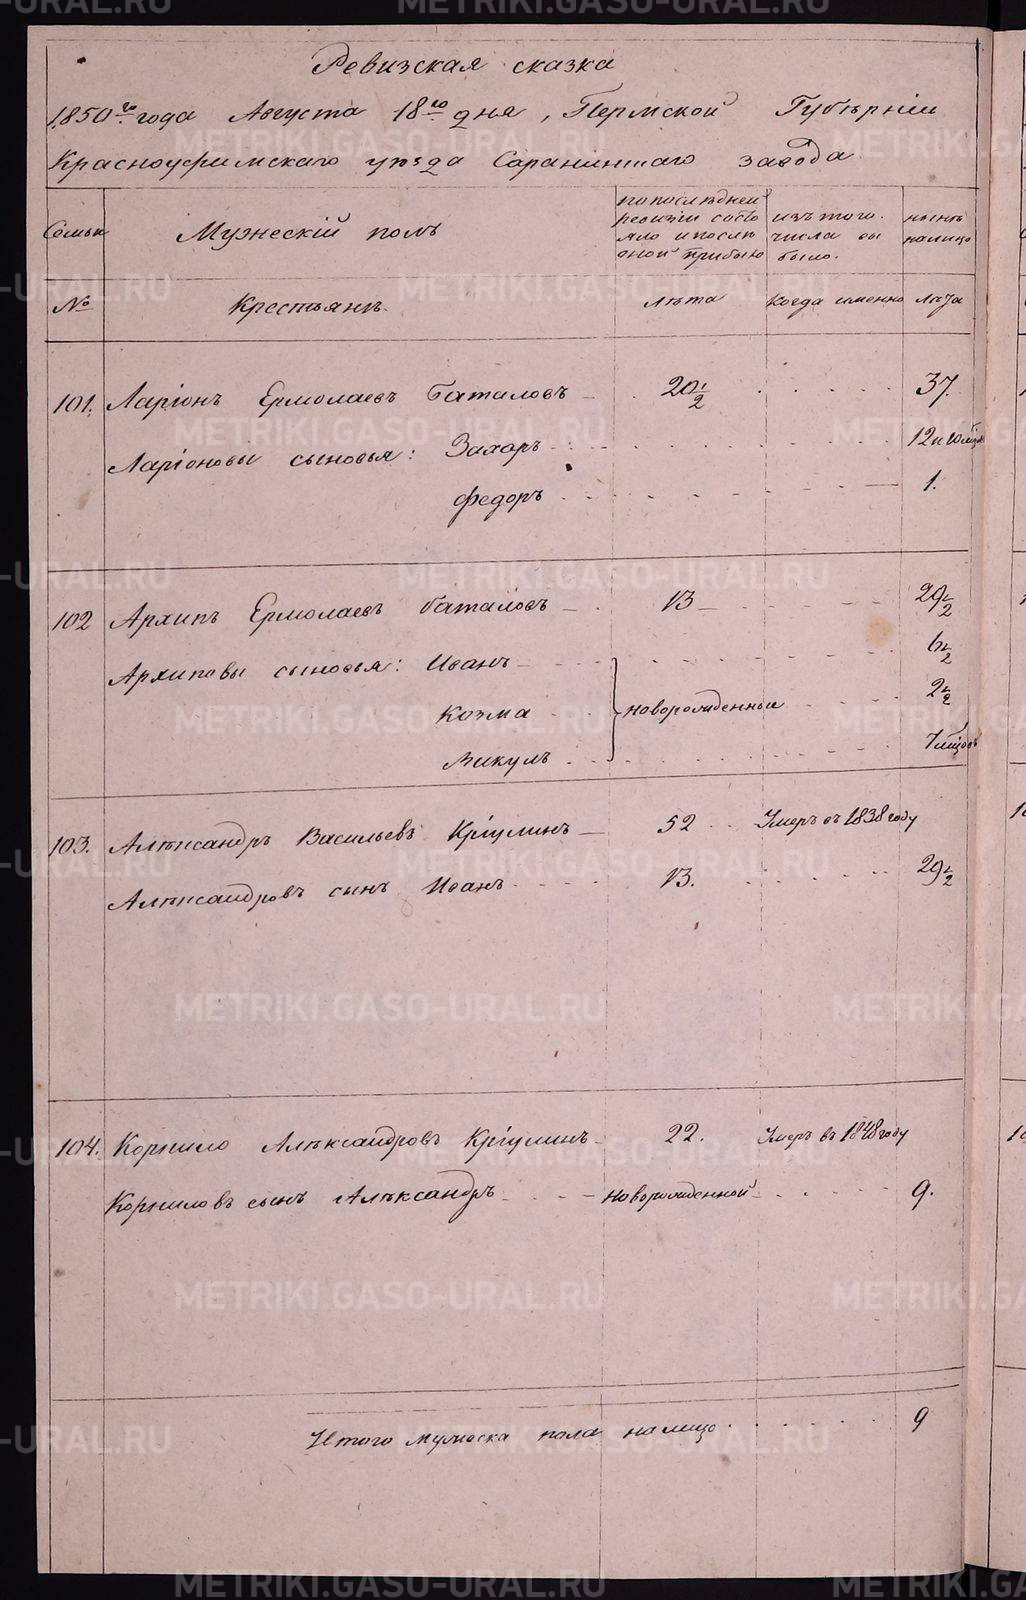 Ревизская сказка
1850го года Августа 18го дня, Пермской Губѣрнiи
Красноуфимскаго уѣзда Саранинскаго завода
Семьи
Мужескiй полъ
по последней
ревизiи состо
яло и послѣ
оной прибыло
изъ того
числа вы
было.
нынѣ
налицо
№
Крестьянъ.
Лѣта
Когда именно
Лѣта
101. Ларiонъ Ермолаевъ Баталовъ 20 1/2 37.
Ларiоновы сыновья: Захаръ 12 и 10 мѣцов
Федоръ 1.
102 Архипъ Ермолаевъ баталовъ 13 29 1/2
Архиповы сыновья: Иванъ 6 1/2
Козма новорожденные 2 1/2
Викулъ 7 мѣцовъ
103. Алѣксандръ Васильевъ Крiулинъ 52 Умеръ въ 1838 году
Алѣксандровъ сынъ Иванъ 13. 29 1/2
104. Корнило Алѣксандровъ Крiулинъ 22. Умеръ въ 1848 году
Корниловъ сынъ Алѣксандръ Новорожденной 9.
Итого мужеска пола налицо 9
METRIKI.GASO-URAL.RU